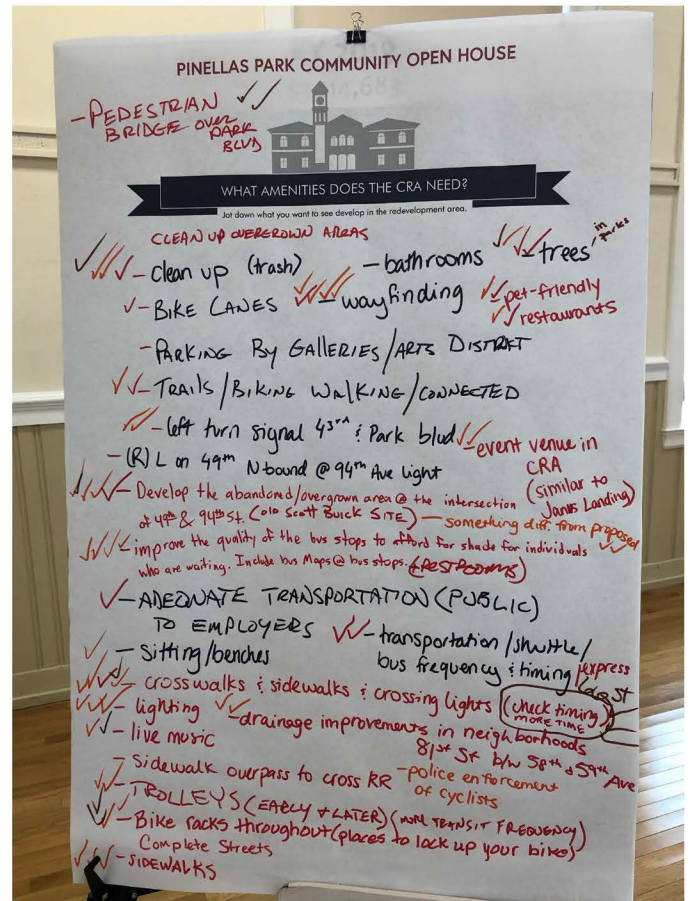 PINELLAS PARK COMMUNITY OPEN HOUSE
- PEDESTRIAN
BRIDGE OVER
PARK
BLVD
WHAT AMENITIES DOES THE CRA NEED?
Jot down what you want to see develop in the redevelopment area.
CLEAN UP OVERGROWN AREAS
- clean up (trash)
- bathrooms
- trees in parks
- BIKE LANES
- wayfinding
- pet-friendly
restaurants
- PARKING BY GALLERIES/ARTS DISTRICT
- TRAILS/BIKING WALKING/CONNECTED
- left turn signal 43rd & Park blvd
- event venue in
CRA
(similar to
Janus Landing)
- (R) L on 49th N bound @ 94th Ave light
- Develop the abandoned/overgrown area @ the intersection
of 49th & 94th St. (OLD Scott Buick SITE) - something diff. from proposed
- improve the quality of the bus stops to afford for shade for individuals
who are waiting. Include bus Maps @ bus stops. (RESTROOMS)
- ADEQUATE TRANSPORTATION (PUBLIC)
TO EMPLOYERS
- transportation/shuttle/
bus frequency & timing/express
- Sitting/benches
- crosswalks & sidewalks & crossing lights (check timing
MORE TIME)
- lighting
- drainage improvements in neighborhoods
81st St b/w 58th & 59th Ave
- live music
- Sidewalk overpass to cross RR
- police enforcement
of cyclists
- TROLLEYS (EARLY & LATER) (MORE TRANSIT FREQUENCY)
- Bike racks throughout (places to lock up your bike)
Complete Streets
- SIDEWALKS